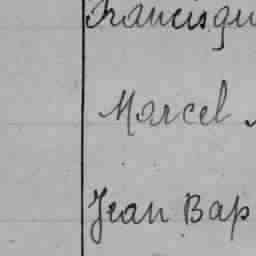 Francisqu
Marcel
Jean Bap